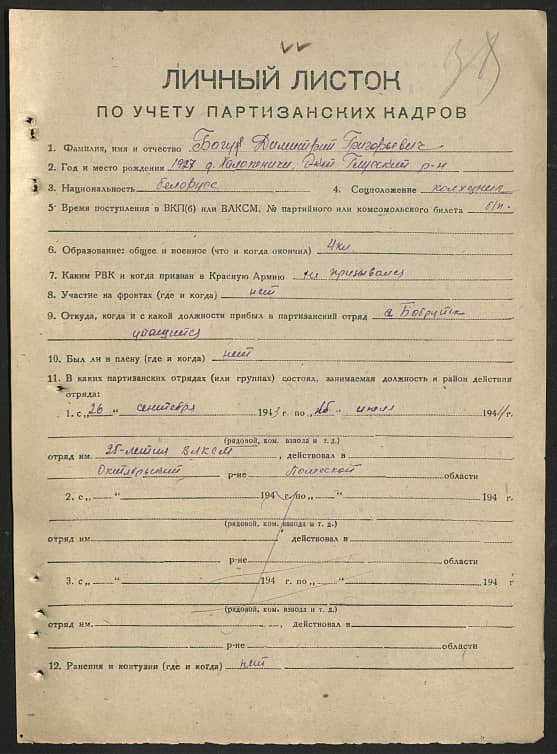 ЛИЧНЫЙ ЛИСТОК
ПО УЧЕТУ ПАРТИЗАНСКИХ КАДРОВ
1. Фамилия, имя и отчество Димитрий Григорьевич
2. Год и место рождения 1927 д. Глусский р-н
3. Национальность белорус 4. Соцположение колхозник
5 Время поступления в ВКП(б) или ВЛКСМ. № партийного или комсомольского билета б/п.
6. Образование: общее и военное (что и когда окончил) 4 кл
7. Каким РВК и когда призван в Красную Армию не призывался
8. Участие на фронтах (где и когда) нет
9. Откуда, когда и с какой должности прибыл в партизанский отряд г. Бобруйск
учащийся
10. Был ли в плену (где и когда) нет
11. В каких партизанских отрядах (или группах) состоял, занимаемая должность и район действия
отряда:
1. с „26“ сентября 1943 г. по „ “ 1944 г.
(рядовой, ком. взвода и т. д.)
отряд им. 25-летия ВЛКСМ, действовал в
Октябрьский р-не Полесской области
2. с „ “ 194 г. по „ “ 194 г.
(рядовой, ком. взвода и т. д.)
отряд им. , действовал в
р-не области
3. с „ “ 194 г. по „ “ 194 г
(рядовой, ком. взвода и т. д.)
отряд им. , действовал в
р-не области
12. Ранения и контузии (где и когда) нет